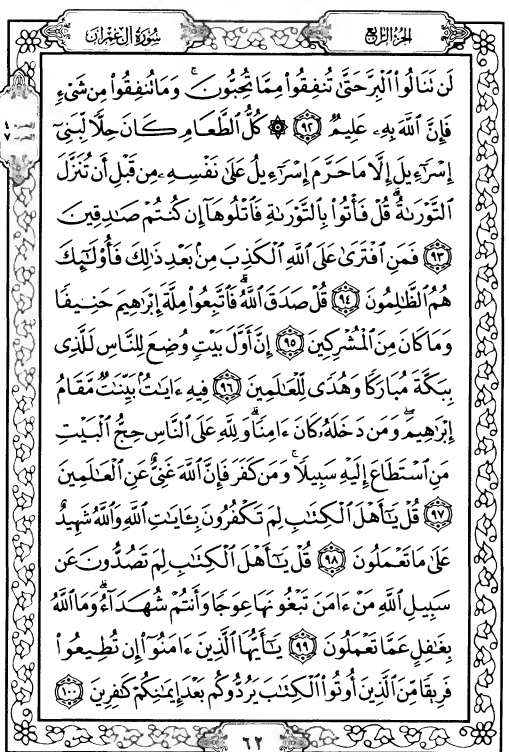 سُورَةُ آلِ عِمْرَان
الجُزْءُ الرَّابِعُ
لَن تَنَالُوا۟ ٱلْبِرَّ حَتَّىٰ تُنفِقُوا۟ مِمَّا تُحِبُّونَ ۚ وَمَا تُنفِقُوا۟ مِن شَىْءٍ
فَإِنَّ ٱللَّهَ بِهِۦ عَلِيمٌ ﴿٩٢﴾ ۞ كُلُّ ٱلطَّعَامِ كَانَ حِلًّا لِّبَنِىٓ
إِسْرَٰٓءِيلَ إِلَّا مَا حَرَّمَ إِسْرَٰٓءِيلُ عَلَىٰ نَفْسِهِۦ مِن قَبْلِ أَن تُنَزَّلَ
ٱلتَّوْرَىٰةُ ۗ قُلْ فَأْتُوا۟ بِٱلتَّوْرَىٰةِ فَٱتْلُوهَآ إِن كُنتُمْ صَٰدِقِينَ
﴿٩٣﴾ فَمَنِ ٱفْتَرَىٰ عَلَى ٱللَّهِ ٱلْكَذِبَ مِنۢ بَعْدِ ذَٰلِكَ فَأُو۟لَٰٓئِكَ
هُمُ ٱلظَّٰلِمُونَ ﴿٩٤﴾ قُلْ صَدَقَ ٱللَّهُ ۗ فَٱتَّبِعُوا۟ مِلَّةَ إِبْرَٰهِيمَ حَنِيفًا
وَمَا كَانَ مِنَ ٱلْمُشْرِكِينَ ﴿٩٥﴾ إِنَّ أَوَّلَ بَيْتٍ وُضِعَ لِلنَّاسِ لَلَّذِى
بِبَكَّةَ مُبَارَكًا وَهُدًى لِّلْعَٰلَمِينَ ﴿٩٦﴾ فِيهِ ءَايَٰتٌۢ بَيِّنَٰتٌ مَّقَامُ
إِبْرَٰهِيمَ ۖ وَمَن دَخَلَهُۥ كَانَ ءَامِنًا ۗ وَلِلَّهِ عَلَى ٱلنَّاسِ حِجُّ ٱلْبَيْتِ
مَنِ ٱسْتَطَاعَ إِلَيْهِ سَبِيلًا ۚ وَمَن كَفَرَ فَإِنَّ ٱللَّهَ غَنِىٌّ عَنِ ٱلْعَٰلَمِينَ
﴿٩٧﴾ قُلْ يَٰٓأَهْلَ ٱلْكِتَٰبِ لِمَ تَكْفُرُونَ بِـَٔايَٰتِ ٱللَّهِ وَٱللَّهُ شَهِيدٌ
عَلَىٰ مَا تَعْمَلُونَ ﴿٩٨﴾ قُلْ يَٰٓأَهْلَ ٱلْكِتَٰبِ لِمَ تَصُدُّونَ عَن
سَبِيلِ ٱللَّهِ مَنْ ءَامَنَ تَبْغُونَهَا عِوَجًا وَأَنتُمْ شُهَدَآءُ ۗ وَمَا ٱللَّهُ
بِغَٰفِلٍ عَمَّا تَعْمَلُونَ ﴿٩٩﴾ يَٰٓأَيُّهَا ٱلَّذِينَ ءَامَنُوٓا۟ إِن تُطِيعُوا۟
فَرِيقًا مِّنَ ٱلَّذِينَ أُوتُوا۟ ٱلْكِتَٰبَ يَرُدُّوكُم بَعْدَ إِيمَٰنِكُمْ كَٰفِرِينَ ﴿١٠٠﴾
٦٢